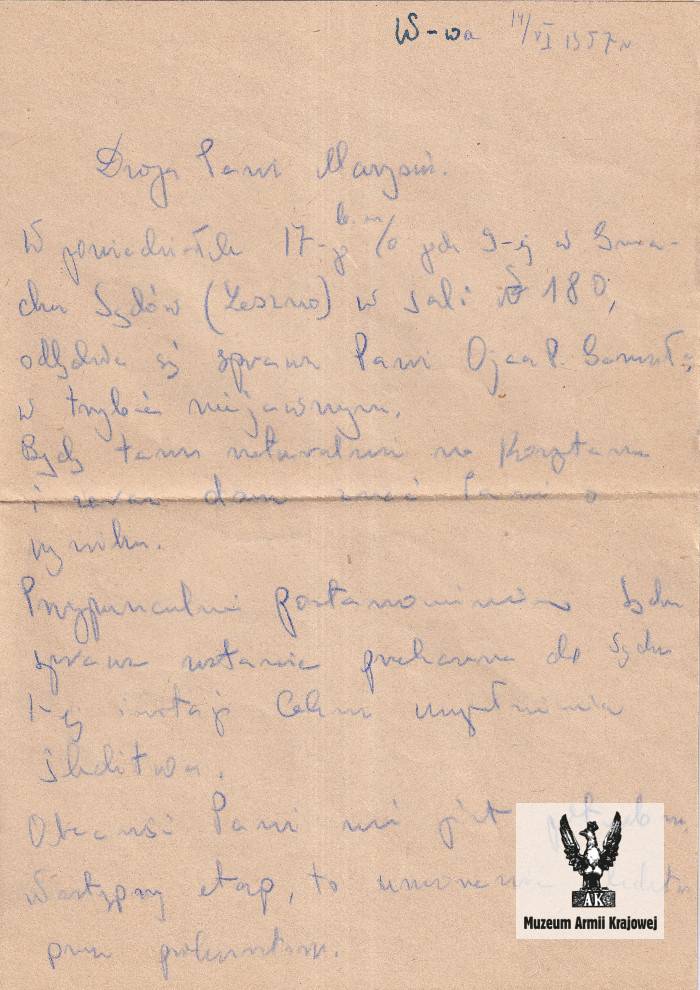 W-wa 14/VI 1957 r
Droga Pani Marysiu.
W poniedziałek 17-go b.m. o godz 9-ej w Gma-
chu Sądów (Leszno) w sali № 180,
odbędzie się sprawa Pani Ojca P.
w trybie niejawnym.
Będę tam naturalnie na
i zaraz dam znać Pani o
wyniku.
Przypuszczalnie postanowieniem Sądu
sprawa zostanie przekazana do Sądu
I-ej instancji celem uzupełnienia
śledztwa.
Obecność Pani nie jest
Wstępny etap, to
przez prokuraturę.
AK
Muzeum Armii Krajowej